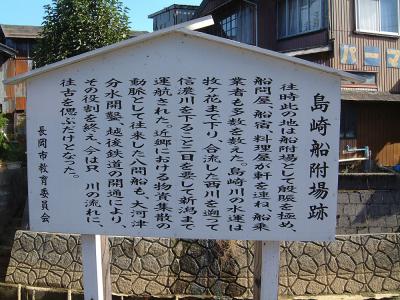 島崎船附場跡
往時此の地は船附場として殷賑を極め、
船問屋、船宿、料理屋が軒を連ね、船乗
業者も多数を数えた。島崎川の水運は
牧ヶ花まで下り、合流した西川を遡って
信濃川を下ること二日を要して新潟まで
運航された。近郷における物資集散の
動脈として往来した八間船も、大河津
分水開鑿、越後鉄道の開通により、
その役割を終え、今は只 川の流れに
往古を偲ぶだけとなった。
長岡市教育委員会
パーマ